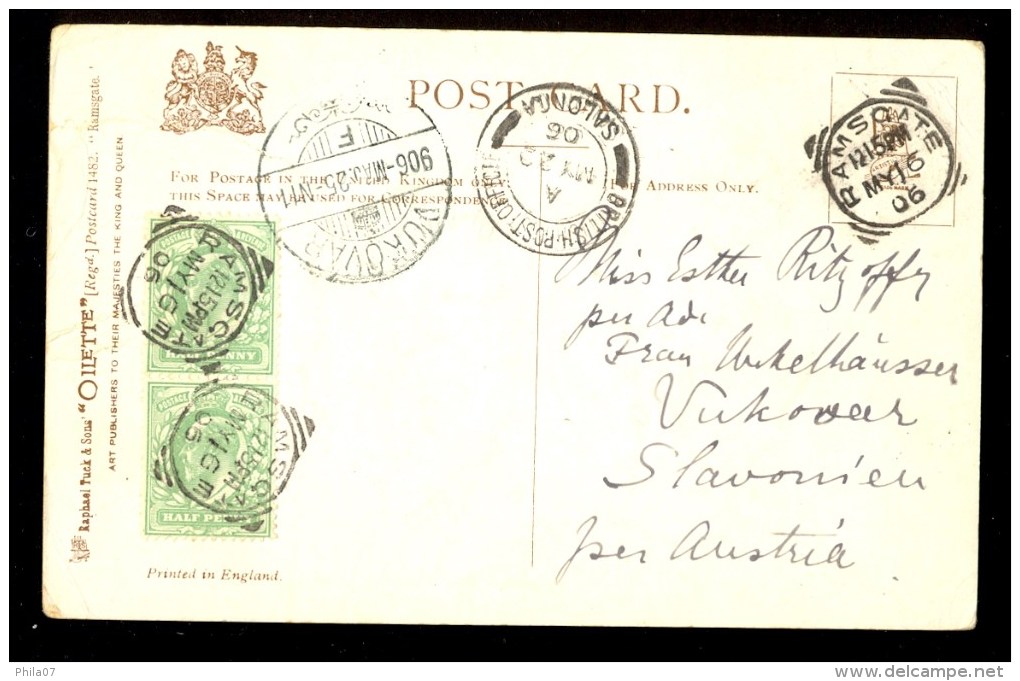 POST CARD.
FOR POSTAGE IN THE UNITED KINGDOM ONLY
THIS SPACE MAY BE USED FOR CORRESPONDENCE
FOR ADDRESS ONLY.
RAMSGATE
12 15 PM
MY 16
06
BRITISH·POST·OFFICE
SALONICA
A
MY 20
06
VUKOVÁR
906-MÁJ.25-N11
F
RAMSGATE
12 15 PM
MY 16
06
RAMSGATE
12 15 PM
MY 16
06
POSTAGE
HALF PENNY
POSTAGE
HALF PENNY
Miss Esther Ritzoffy
per Adr
Frau Unkelhäusser
Vukovar
Slavonien
per Austria
Raphael Tuck & Sons' "OILETTE" [Regd.] Postcard 1482. "Ramsgate."
ART PUBLISHERS TO THEIR MAJESTIES THE KING AND QUEEN
Printed in England.
Phila07
www.delcampe.net